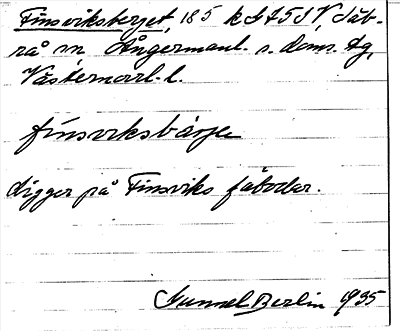 Finsviksberget, 185 kf 75 SV, Säb-
rå sn Ångermanl. s. doms. tg,
Västernorrl. l.
finsviksbärje
ligger på Finsviks fäbodar.
Gunnel Berlin 1935